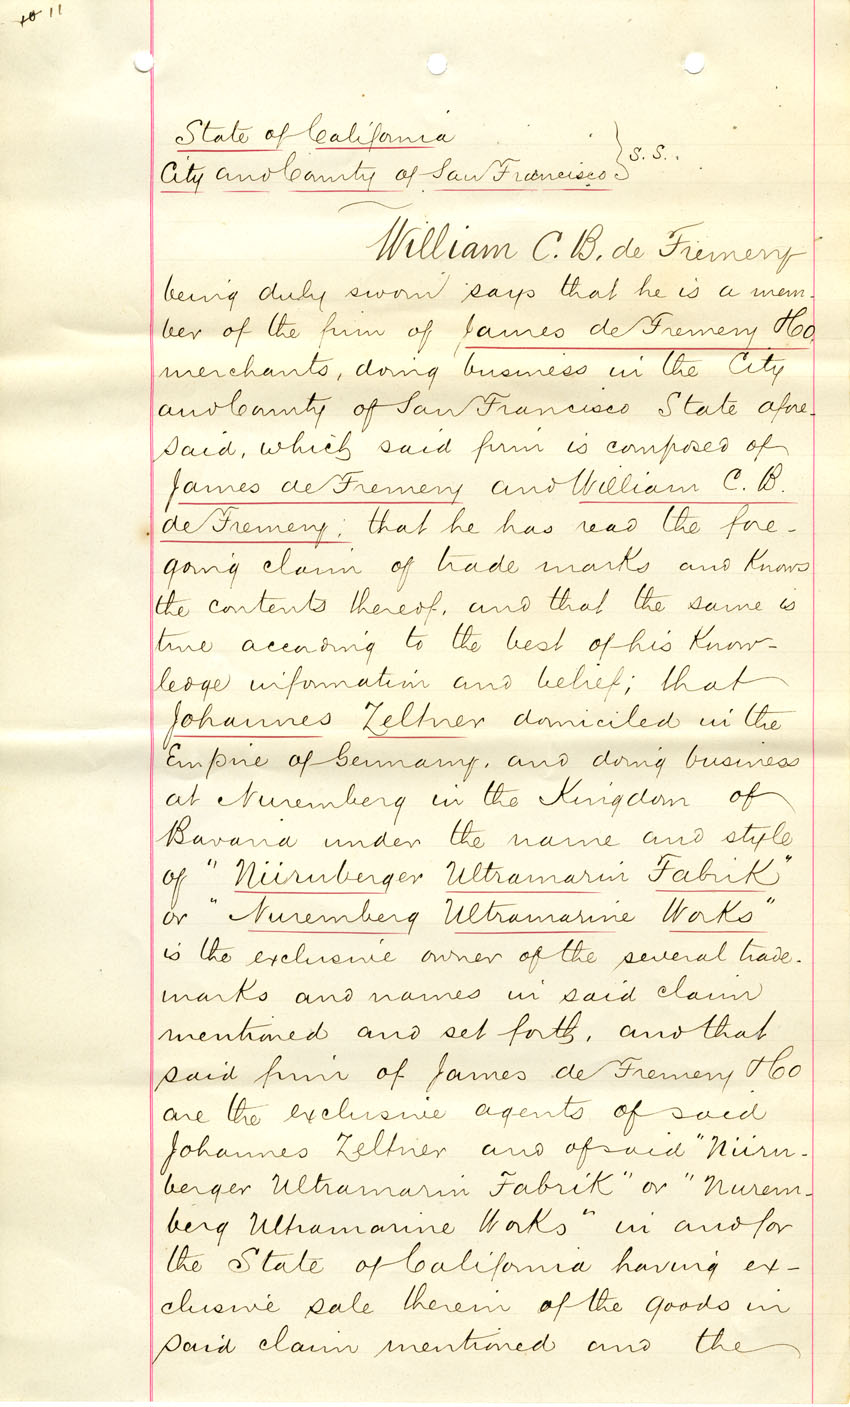 11
State of California
City and County of San Francisco } s.s.
William C. B. de Fremery
being duly sworn says that he is a mem-
ber of the firm of James de Fremery & Co,
merchants, doing business in the City
and County of San Francisco State afore-
said, which said firm is composed of
James de Fremery and William C. B.
de Fremery; that he has read the fore-
going claim of trade marks and knows
the contents thereof, and that the same is
true according to the best of his know-
ledge information and belief; that
Johannes Zeltner domiciled in the
Empire of Germany, and doing business
at Nuremberg in the Kingdom of
Bavaria under the name and style
of "Nürnberger Ultramarin Fabrik"
or "Nuremberg Ultramarine Works"
is the exclusive owner of the several trade-
marks and names in said claim
mentioned and set forth, and that
said firm of James de Fremery & Co
are the exclusive agents of said
Johannes Zeltner and of said "Nürn-
berger Ultramarin Fabrik" or "Nurem-
berg Ultramarine Works" in and for
the State of California having ex-
clusive sale therein of the goods in
said claim mentioned and the